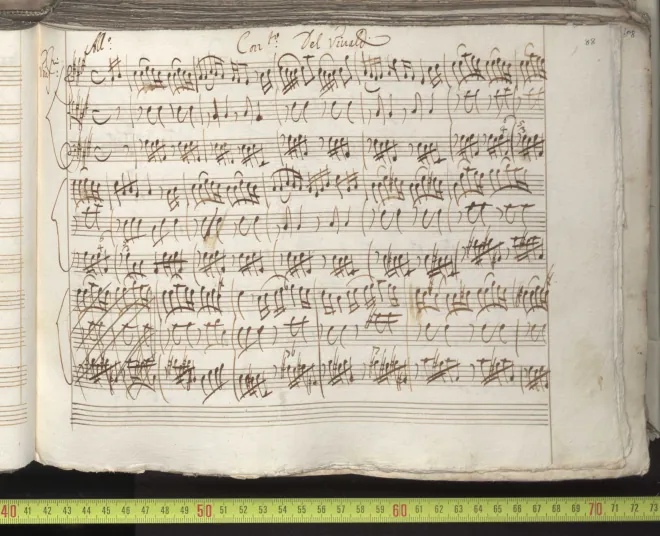 All:º Con:to Del Vivaldi
88
40 41 42 43 44 45 46 47 48 49 50 51 52 53 54 55 56 57 58 59 60 61 62 63 64 65 66 67 68 69 70 71 72 73